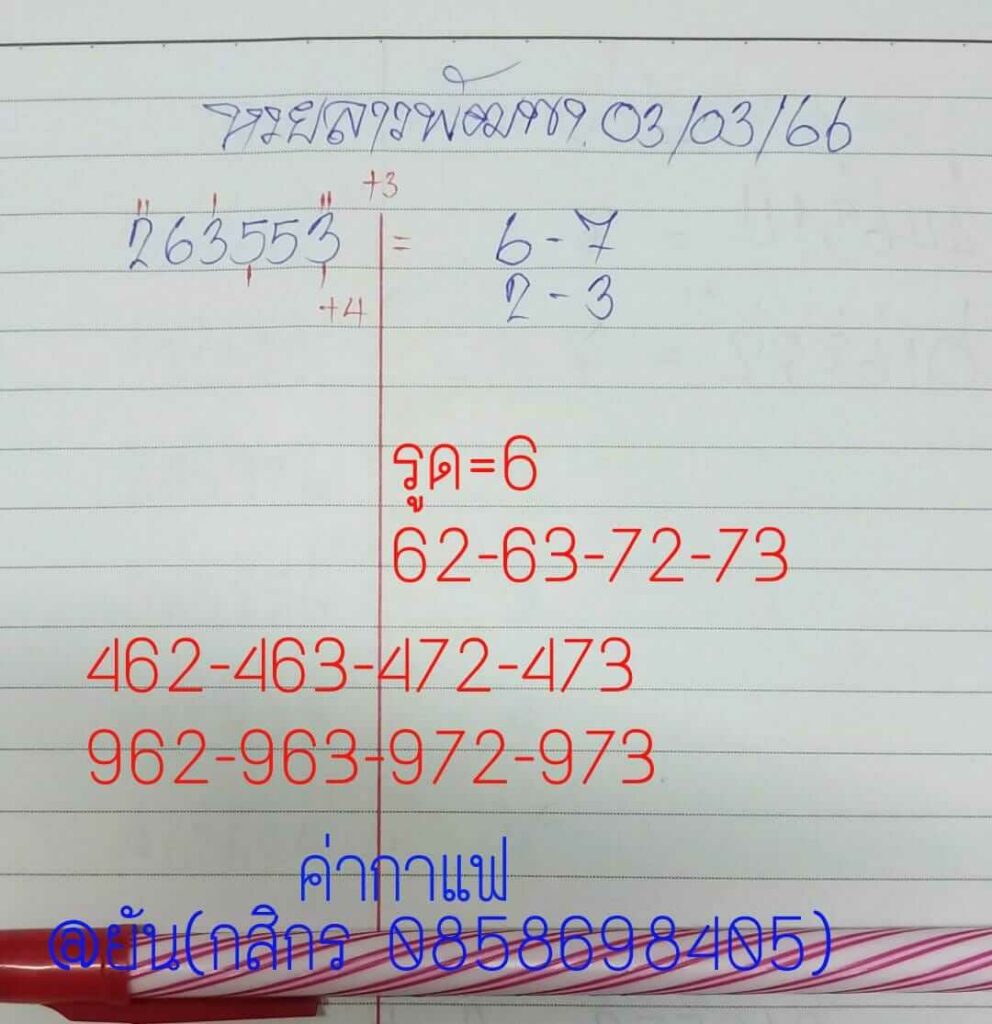 หวยลาวพัฒนา. 03/03/66
+3
263553 = 6-7
+4 2-3
รูด=6
62-63-72-73
462-463-472-473
962-963-972-973
ค่ากาแฟ
@ยัน(กสิกร 0858698405)